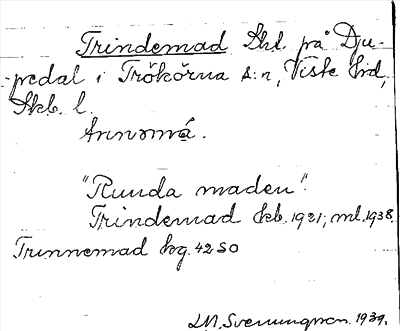 Trindemad Skl. på Dju-
pedal i Trökörna s:n, Viste hd,
Skb. l.
"Runda maden".
Trindemad kb. 1921; ml. 1938.
Trinnemad hg. 42 SO
LM. Svenungson. 1939.